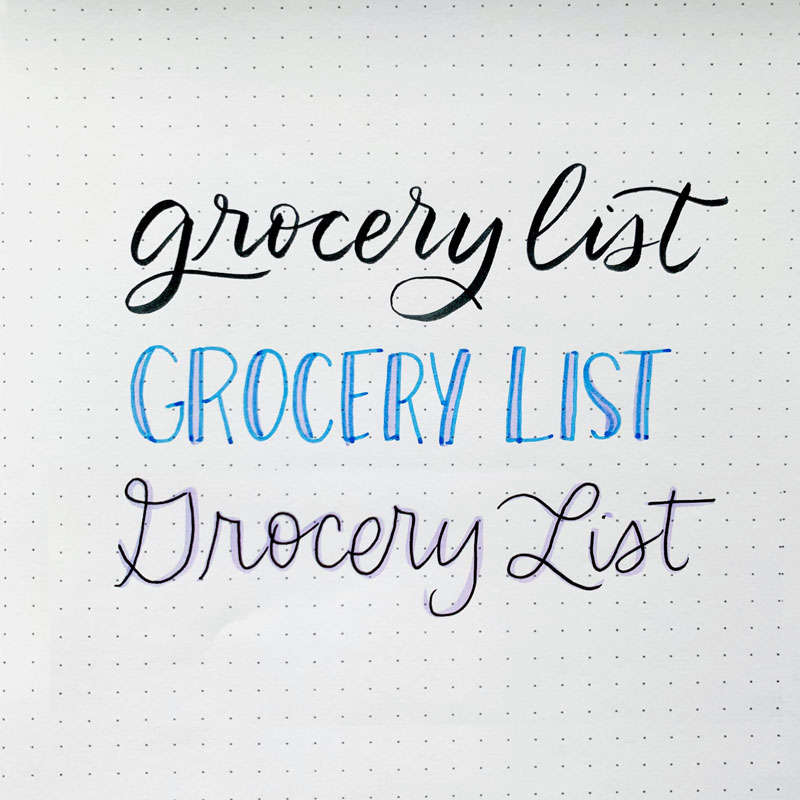 grocery list
GROCERY LIST
Grocery List